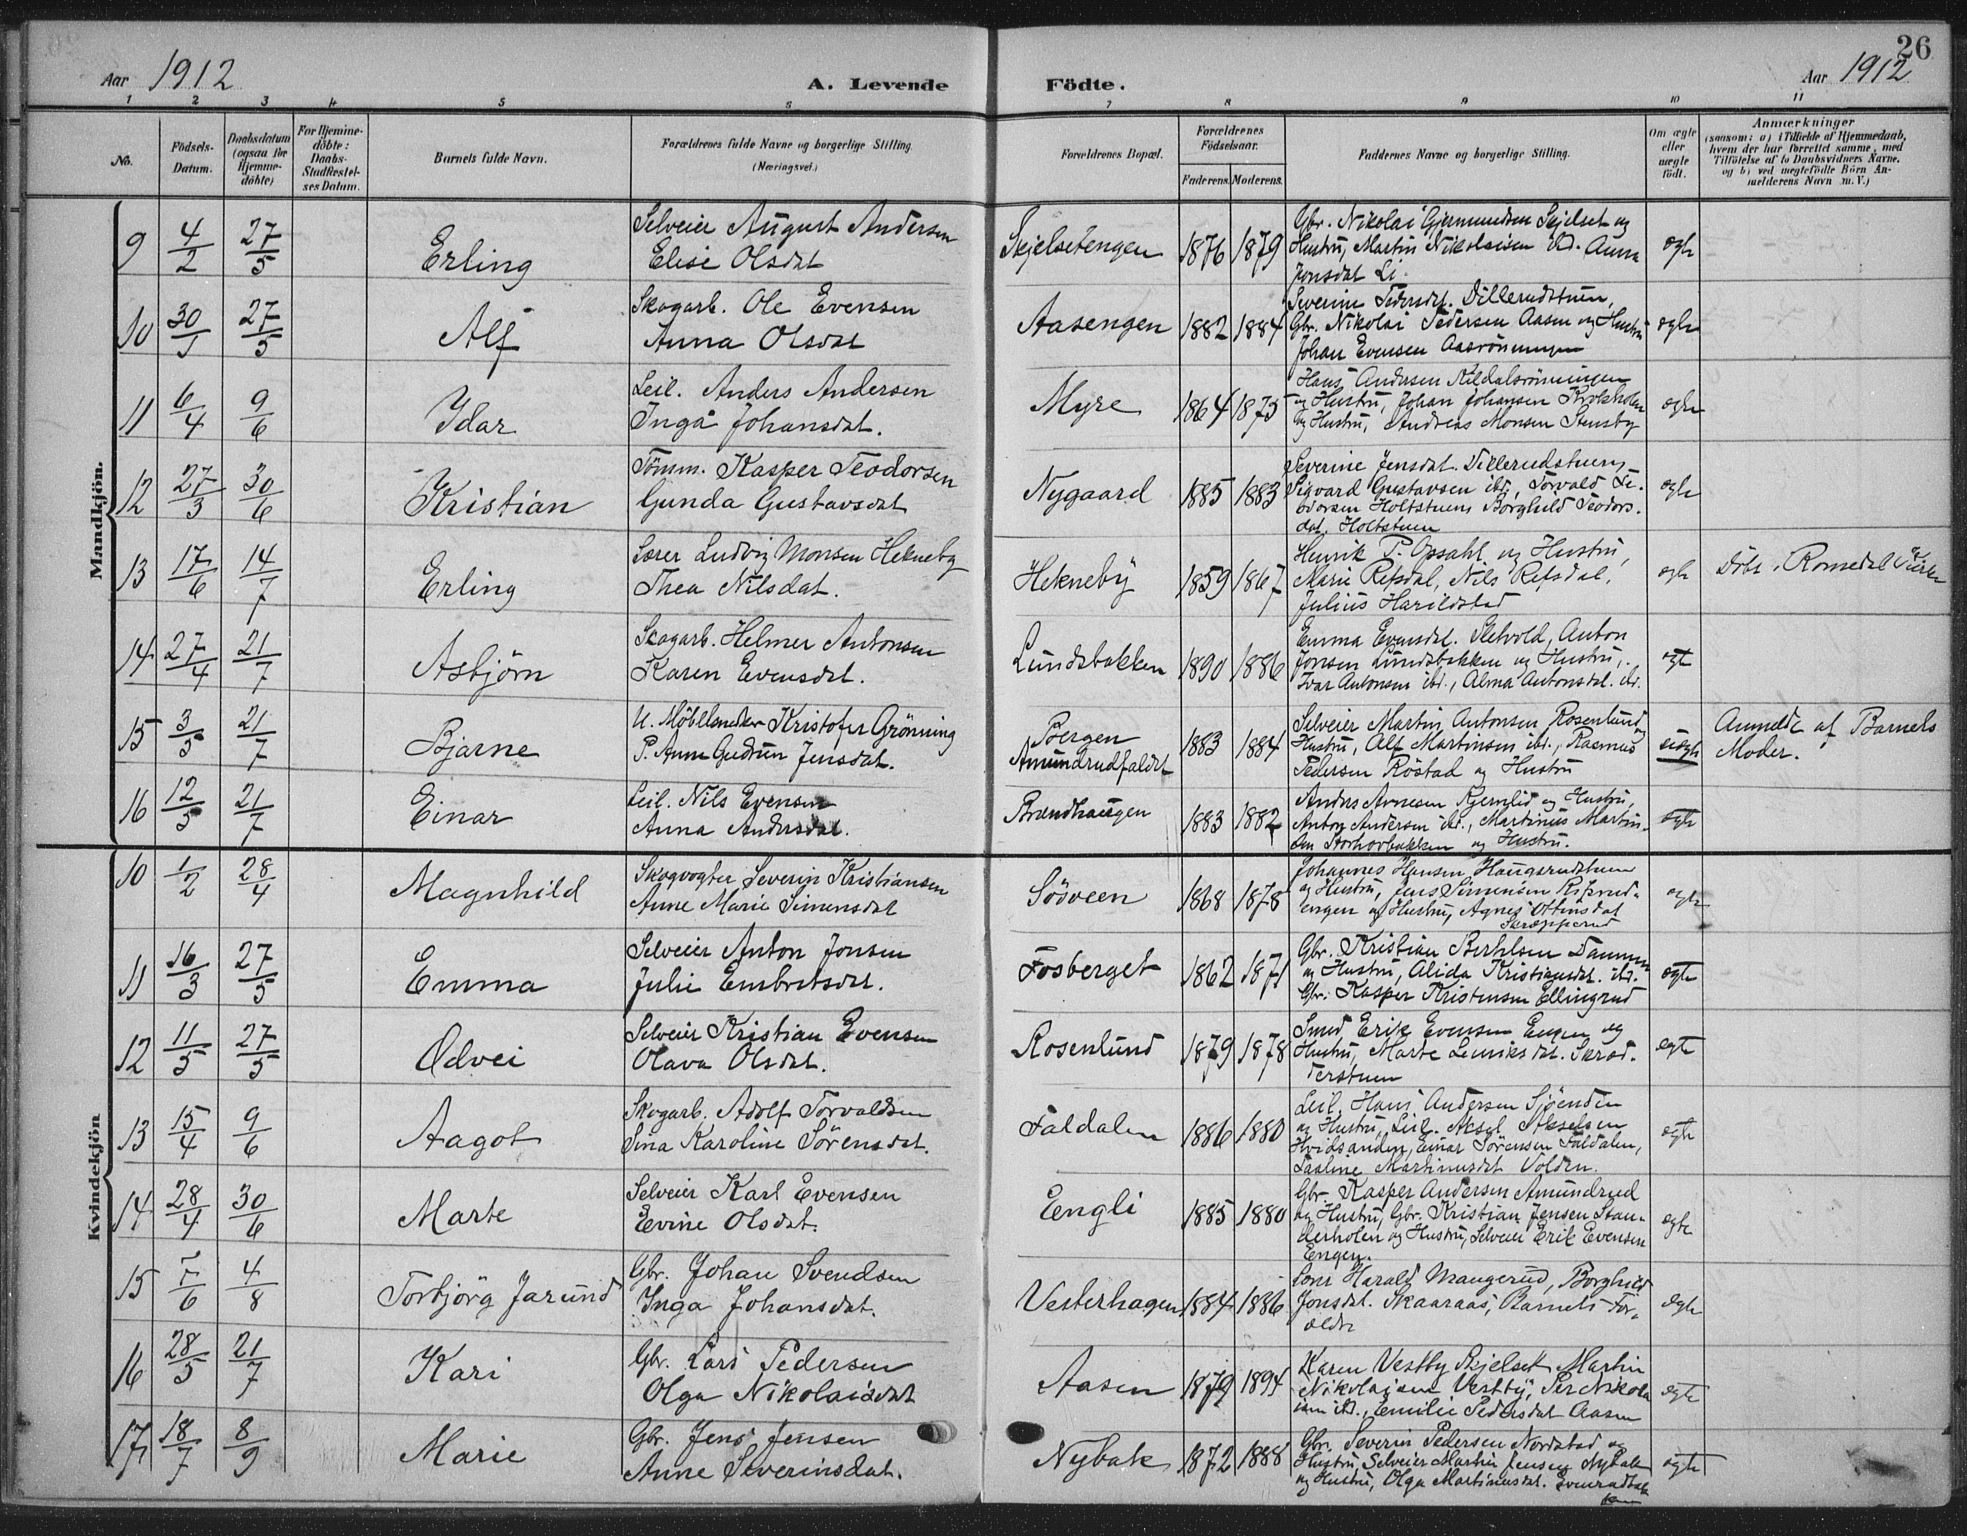 26
Aar 1912
A. Levende
Födte.
Aar 1912
1 2 3 4 5 6 7 8 9 10 11
No.
Födsels-
Datum.
Daabsdatum
(ogsaa for
Hjemme-
döbte)
For Hjemme-
döbte:
Daabs-
Stadfæstel-
ses Datum.
Barnets fulde Navn.
Forældrenes fulde Navne og borgerlige Stilling.
(Næringsvei.)
Forældrenes Bopæl.
Forældrenes
Födselsaar.
Faderens. Moderens.
Faddernes Navne og borgerlige Stilling.
Om ægte
eller
uægte
födt.
Anmærkninger
(saasom: a) i Tilfælde af Hjemmedaab,
hvem der har forrettet samme, med
Tilföielse af to Daabsvidners Navne,
og b) ved uægtefödte Börn An-
melderens Navn m. V.)
Mandkjön.
9 4/2 27/5 Erling
Selveier August Andersen
Elise Olsdat
Skjelsetengen 1876 1879
Gbr. Nikolai Gjermundsen Skjelset og
Hustru, Martin Nikolaisen ibd. Anna
Jonsdat Li.
ægte
10 30/1 27/5 Alf
Skogarb. Ole Evensen
Anna Olsdat
Aasengen 1882 1884
Severine Pedersdt. Dillerudstuen,
Gbr. Nikolai Pedersen Aasen og Hustru
Johan Evensen Aasrönningen
ægte
11 6/4 9/6 Idar
Leil. Anders Andersen
Inga Johansdat.
Myre 1864 1875
Hans Andersen Kildalsrönningen
og Hustru, Johan Johansen Krokholen
og Hustru, Andreas Monsen Stensby
ægte
12 27/3 30/6 Kristian
Tömm. Kasper Teodorsen
Gunda Gustavsdat
Nygaard 1885 1883
Severine Jensdat. Dillerudstuen,
Sigvard Gustavsen ibd., Torvald Te-
odorsen Holtstuen, Borghild Teodors-
dat. Holtstuen
ægte
13 17/6 14/7 Erling
Lærer Ludvig Monsen Hekneby
Thea Nilsdat.
Hekneby 1859 1867
Henrik P. Opsahl og Hustru,
Marie Refsdal, Nils Refsdal,
Julius Harildstad
ægte
Döbt i Romedal Kirke
14 27/4 21/7 Asbjörn
Skogarb. Helmer Antonsen
Karen Evensdat.
Lundsbakken 1890 1886
Emma Evensdat. Sletvold, Anton
Jonsen Lundsbakken og Hustru,
Ivar Antonsen ibd., Alma Antonsdat. ibd.
ægt
15 3/5 21/7 Bjarne
U. Möbelsnedker Kristofer Grönning
P. Anne Gudrun Jensdat.
Bergen
Amundrudfaldet 1883 1884
Selveier Martin Antonsen Rosenlund og
Hustru, Alf Martinsen ibd., Rasmus
Pedersen Röstad og Hustru
uægte
Anmeldt af Barnets
Moder.
16 12/5 21/7 Einar
Leil. Nils Evensen
Anna Andersdat.
Brændhaugen 1883 1882
Anders Arnesen Kjernlid og Hustru,
Anton Andersen ibd., Martinus Martin-
sen Storhovbakken og Hustru.
ægte
Kvindekjön
10 1/2 28/4 Magnhild
Skogvogter Severin Kristiansen
Anne Marie Simensdat
Söoveen 1868 1878
Johannes Hansen Haugsrudstuen
og Hustru, Jens Simensen
engen og Hustru, Agnes Ottinsdat
Skræpperud
ægte
11 16/3 27/5 Emma
Selveier Anton Jonsen
Julie Embretsdat.
Fosberget 1862 1871
Gbr. Kristian Berthelsen Dammen
og Hustru, Alida Kristiansdat. ibd.
Gbr. Kasper Kristensen Ellingrud
ægte
12 11/5 27/5 Odvei
Selveier Kristian Evensen
Olava Olsdat.
Rosenlund 1879 1878
Smed Erik Evensen Engen og
Hustru, Marte Lemiksdat. Skræd-
derstuen
egte
13 15/4 9/6 Aagot
Skogarb. Adolf Torvaldsen
Sina Karoline Sörensdat.
Faldalen 1886 1880
Leil. Hans Andersen Sjöenden
og Hustru, Leil. Aksel Akselsen
Hvidsanden, Einar Sörensen Faldalen,
Pauline Martinusdat Volden.
ægte
14 28/4 30/6 Marte
Selveier Karl Evensen
Evine Olsdat.
Engli 1885 1880
Gbr. Kasper Andersen Amundrud
og Hustru, Gbr. Kristian Jensen Stan-
derholen og Hustru, Selveier Erik Evensen
Engen.
ægte
15 7/6 4/8 Torbjörg Jarund
Gbr. Johan Svendsen
Inga Johansdat.
Vesterhagen 1884 1886
Harald Mangerud, Borghild
Jonsdat. Skaaraas, Barnets For-
ældre
ægte
16 28/5 21/7 Kari
Gbr. Lars Pedersen
Olga Nikolaisdat
Aasen 1879 1894
Karen Vestby Skjelset, Martin
Nikolaisen Vestby, Per Nikola
isen ibd., Emilie Pedersdat Aasen
egte
17 18/7 8/9 Marie
Gbr. Jens Jensen
Anne Severinsdat.
Nybak 1872 1888
Gbr. Severin Pedersen Nordstad og
Hustru, Selveier Martin Jensen Nybak
og Hustru, Olga Martinusdat. Evenrudbak
ken
ægte